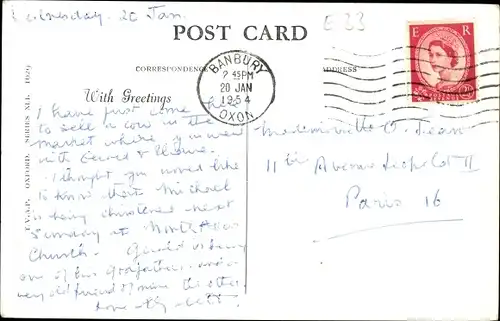 Wednesday. 20 Jan.
E 33
POST CARD
CORRESPONDENCE
ADDRESS
BANBURY
2 45PM
20 JAN
1954
OXON.
E R
With Greetings
E.V.A.P. OXFORD. SERIES XLI.
I have just come here
to sell a cow in the
market where you went
with Gerald &
I thought you would like
to know that Michael
is being christened next
Sunday at North Aston
Church. Gerald is being
one of his godfathers and a
very old friend of mine the other
love
Mademoiselle O. Jean
11 bis Avenue Leopold II
Paris 16